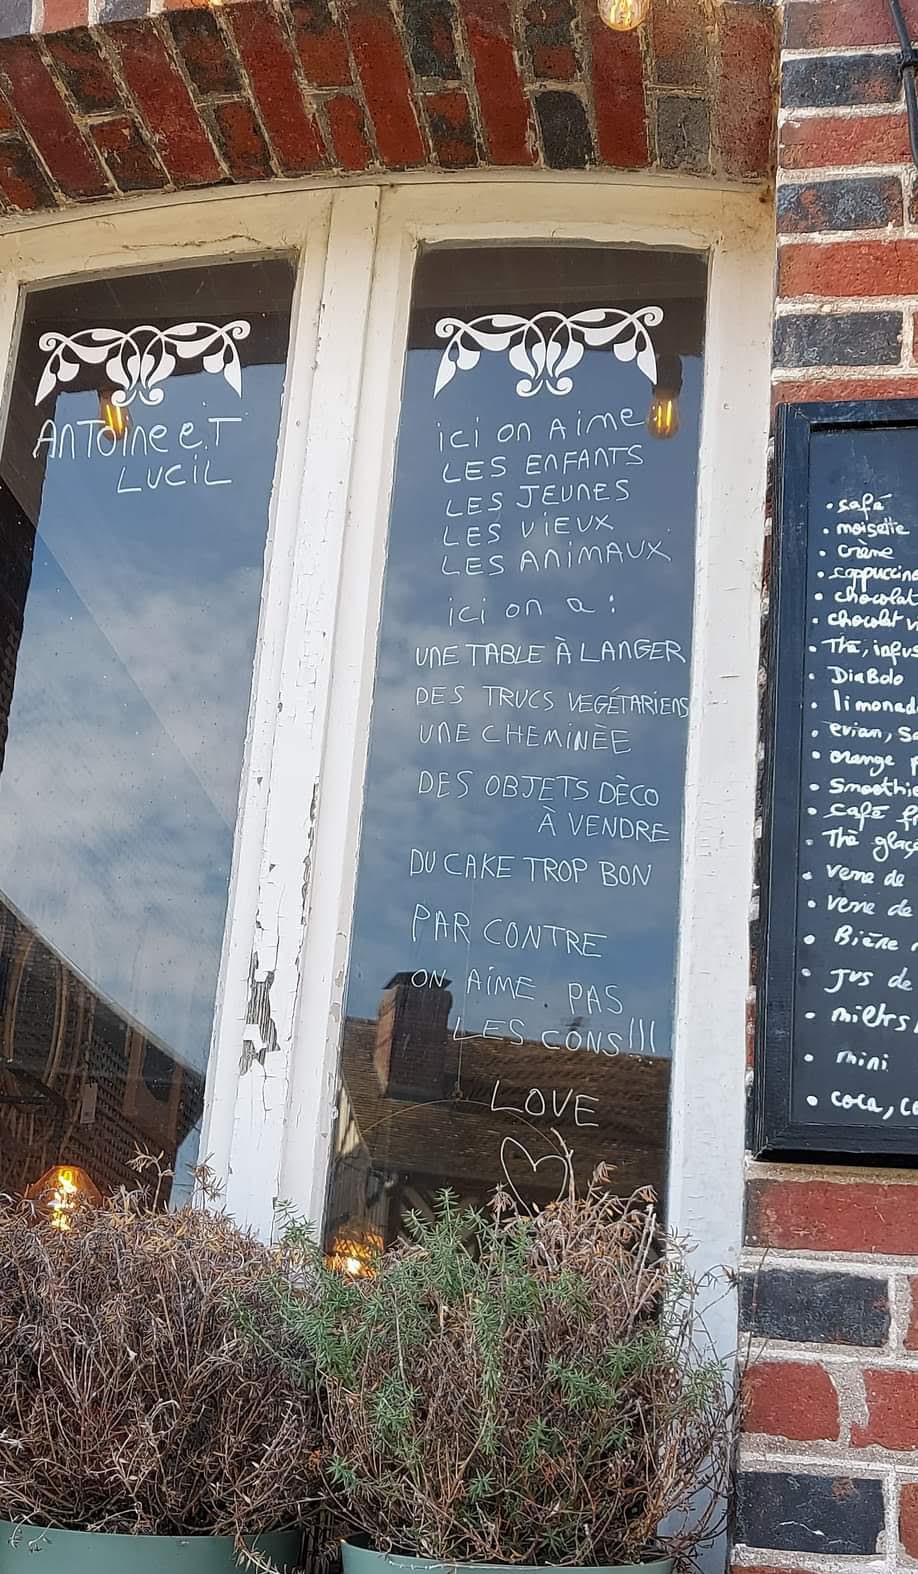 AnToine e.T
LUCiL
ici on Aime
LES ENFANTS
LES JEUNES
LES ViEUX
LES ANIMAUX
ici on a :
UNE TABLE À LANGER
DES TRUCS VEGÉTARIENS
UNE CHEMINÈE
DES OBJETS DÈCO
À VENDRE
DU CAKE TROP BON
PAR CONTRE
ON AiME PAS
LES CONS!!!
LOVE
• café
• moisette
• crème
• cappuccino
• chocolat
• chocolat
• Thé,
• DiaBolo
• limonad
• evian,
• orange
• Smoothie
• café
• Thé glaç
• verre de
• verre de
• Bière
• Jus de
•
• mini
• coca,